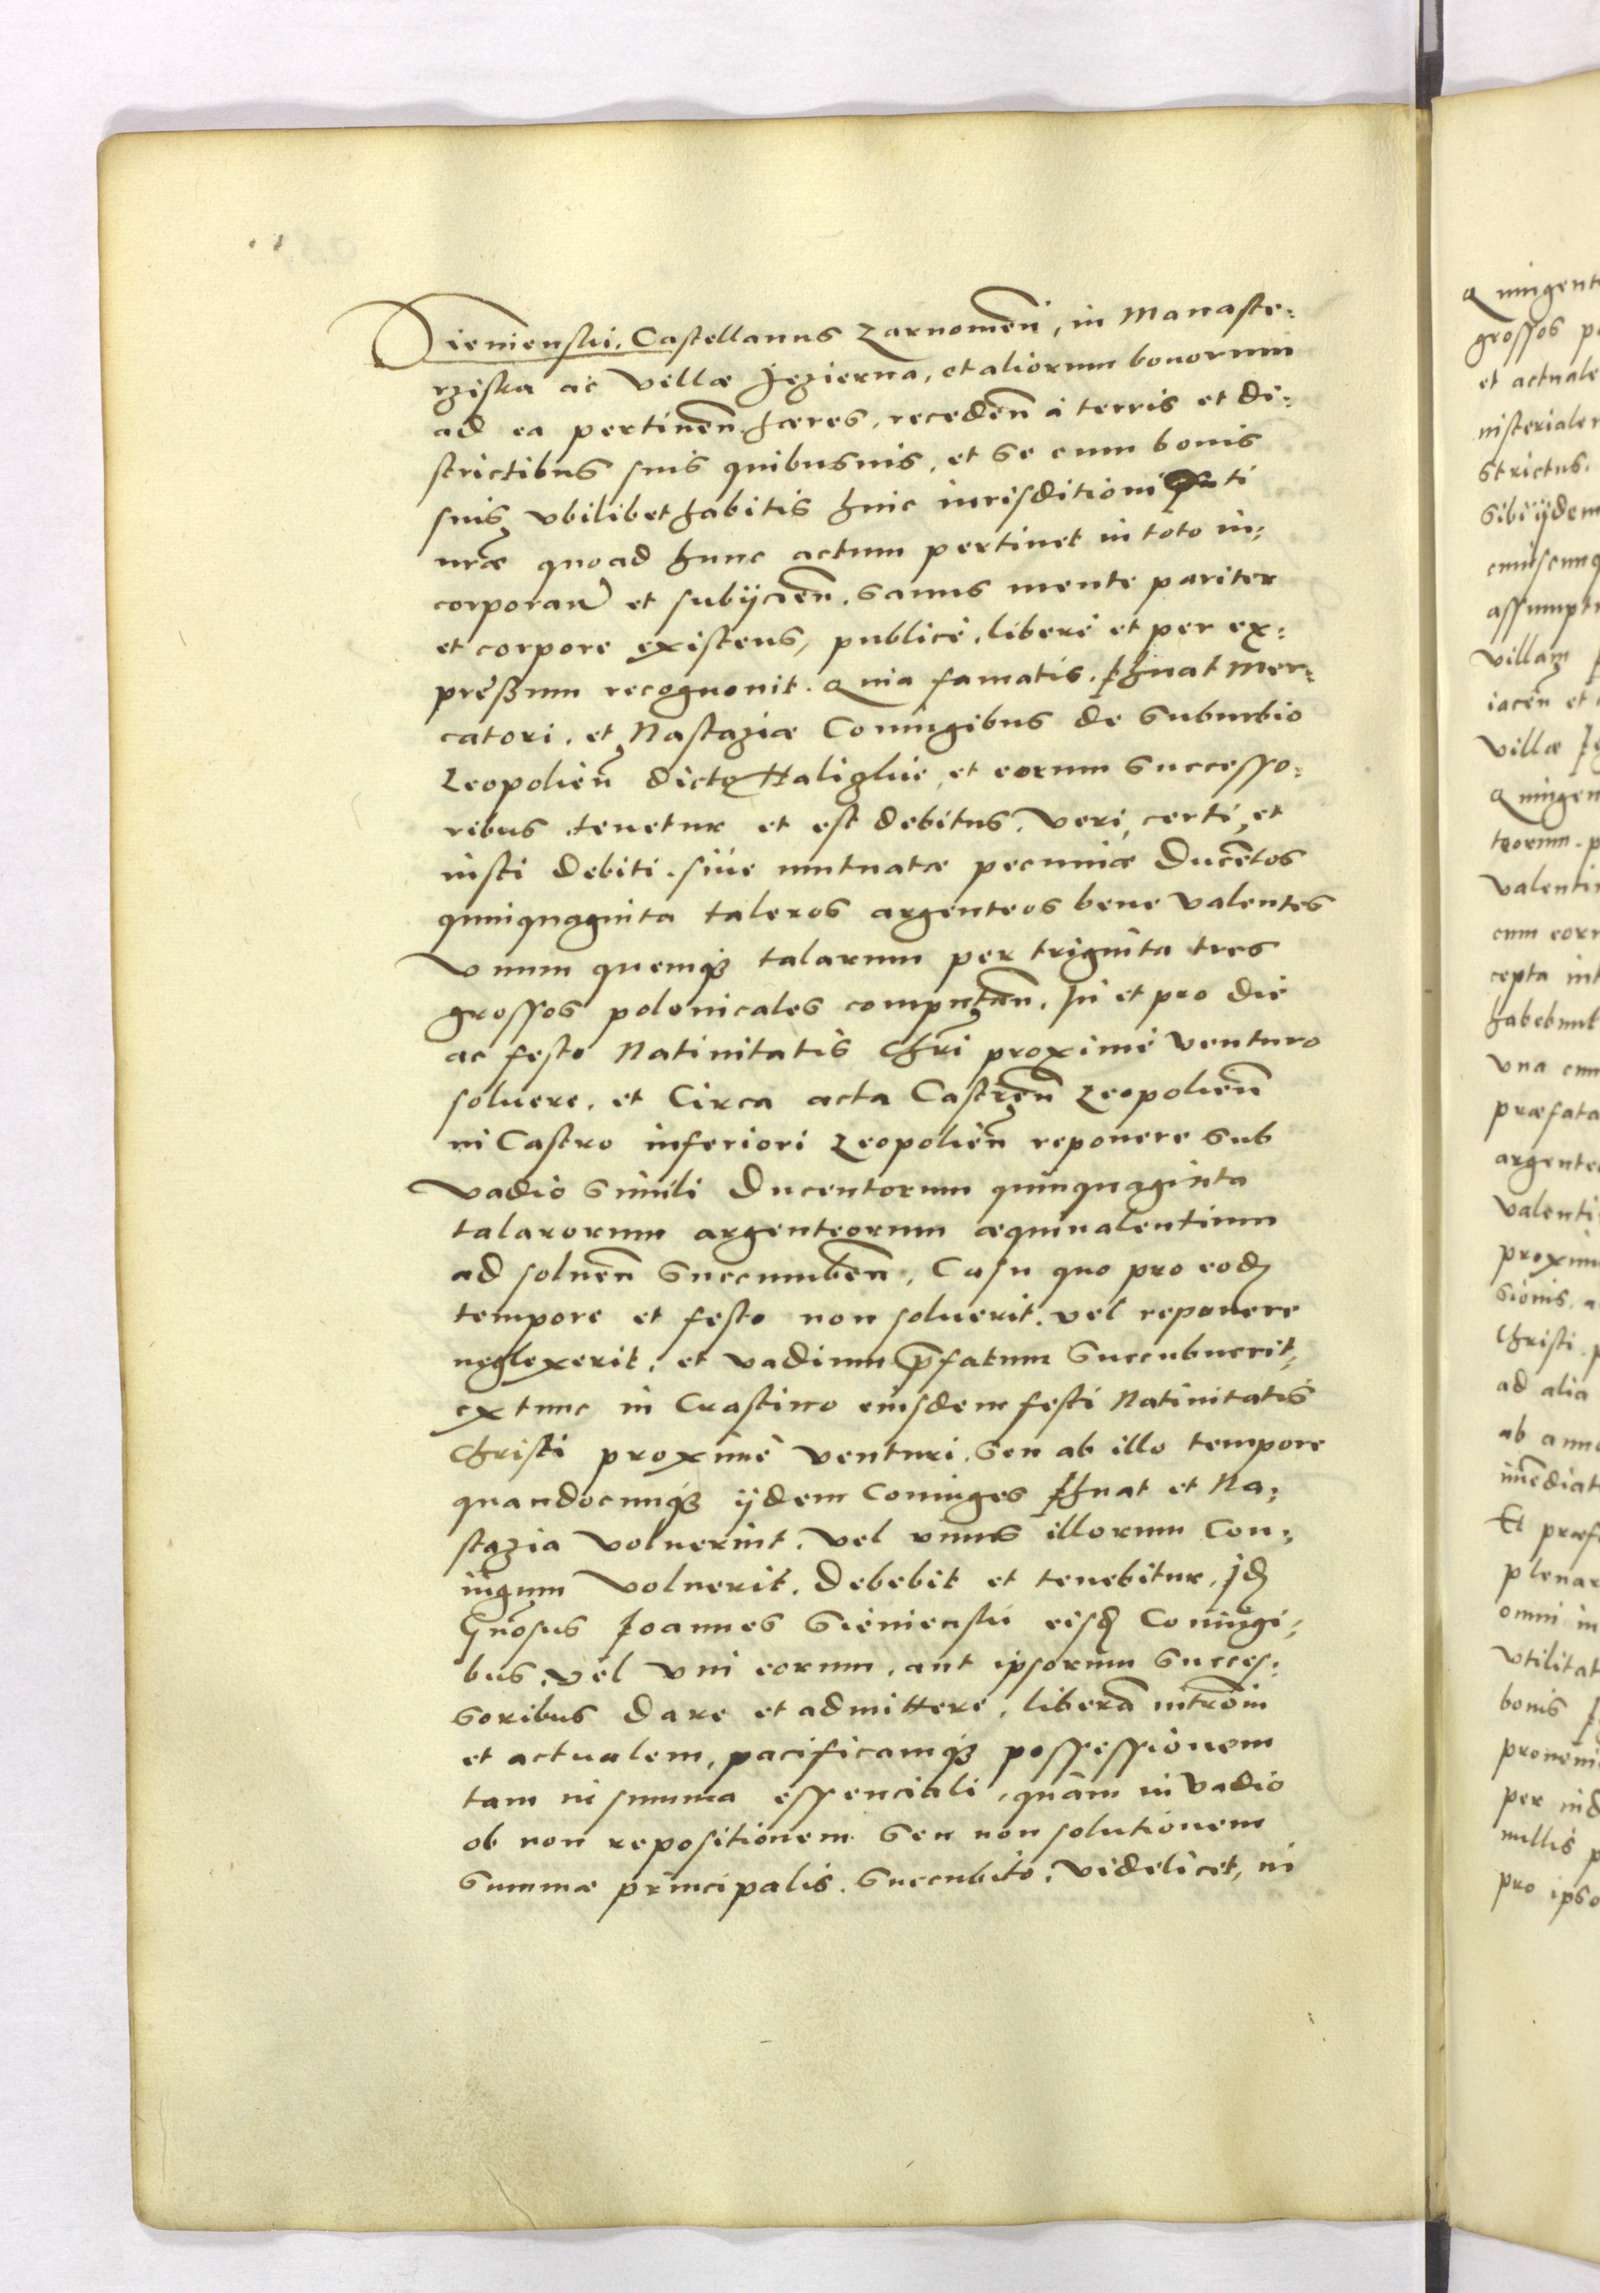 Sienienski, Castellanus Zarnomen̄, in Manaste:
rziska ac villæ Jezierna, et aliorum bonorum
ad ea pertinen̄. hæres, receden̄ à terris et di:
strictibus suis quibusuis, et se cum bonis
suis vbilibet habitis huic iurisditioni
quoad hunc actum pertinet in toto in:
corporan̄ et subÿcien̄. Sanus mente pariter
et corpore existens, publicè, liberè et per ex:
preßum recognouit. Quia famatis. Ihnat Mer:
catori. et Nastaziæ Coniugibus de Suburbio
Leopolien̄ dictꝭ Haliglue, et eorum Successo:
ribus tenetur et est debitus. Veri, certi, et
iusti debiti. siue mutuatæ pecuniæ Ducētos
quinquaginta taleros argenteos bene valentes
Vnum quemqꝫ talarum per triginta tres
grossos polonicales computan̄. In et pro die
ac festo Natiuitatis Chr̄i proximè venturo
soluere. et Circa acta Castren̄ Leopolien̄
in Castro inferiori Leopolien̄ reponere sub
Vadio simili Ducentorum quinquaginta
talarorum argenteorum æquiualentium
ad soluen̄ Succumben̄, Casu quo pro eodꝫ
tempore et festo non soluerit. vel reponere
neglexerit, et vadium p̄fatum Succubuerit,
extunc in Crastino eiusdem festi Natiuitatis
Christi proximè venturi. Seu ab illo tempore
quandocunqꝫ ÿdem Coniuges Ihnat et Na:
stazia Voluerint. Vel vnus illorum Con:
iugum Voluerit. Debebit et tenebitur, Jdꝫ
Gn̄osus Joannes Sienienski eisdꝫ Coniugi:
bus. vel vni eorum, aut ipsorum Succes:
soribus Dare et admittere, liberā intrōm
et actualem, pacificamqꝫ possessionem
tam in summa essenciali, quàm in Vadio
ob non repositionem Seu non solutionem
Summæ principalis. Succubito, videlicet, in
Quingent
grossos p
et actuale
nisteriale
strictus.
sibi ÿdem
cuiscunq
assumpt
villam
iacen̄ et
villæ
Quingen
teorum. p
valenti
cum eor
cepta int
habebunt
vna cum
præfata
argente
valenti
proxim
sionis. a
Christi. p
ad alia
ab anno
im̄ediat
Et præf
plenar
omni in
vtilitat
bonis
proueni
per ind
nullis p
pro ipso